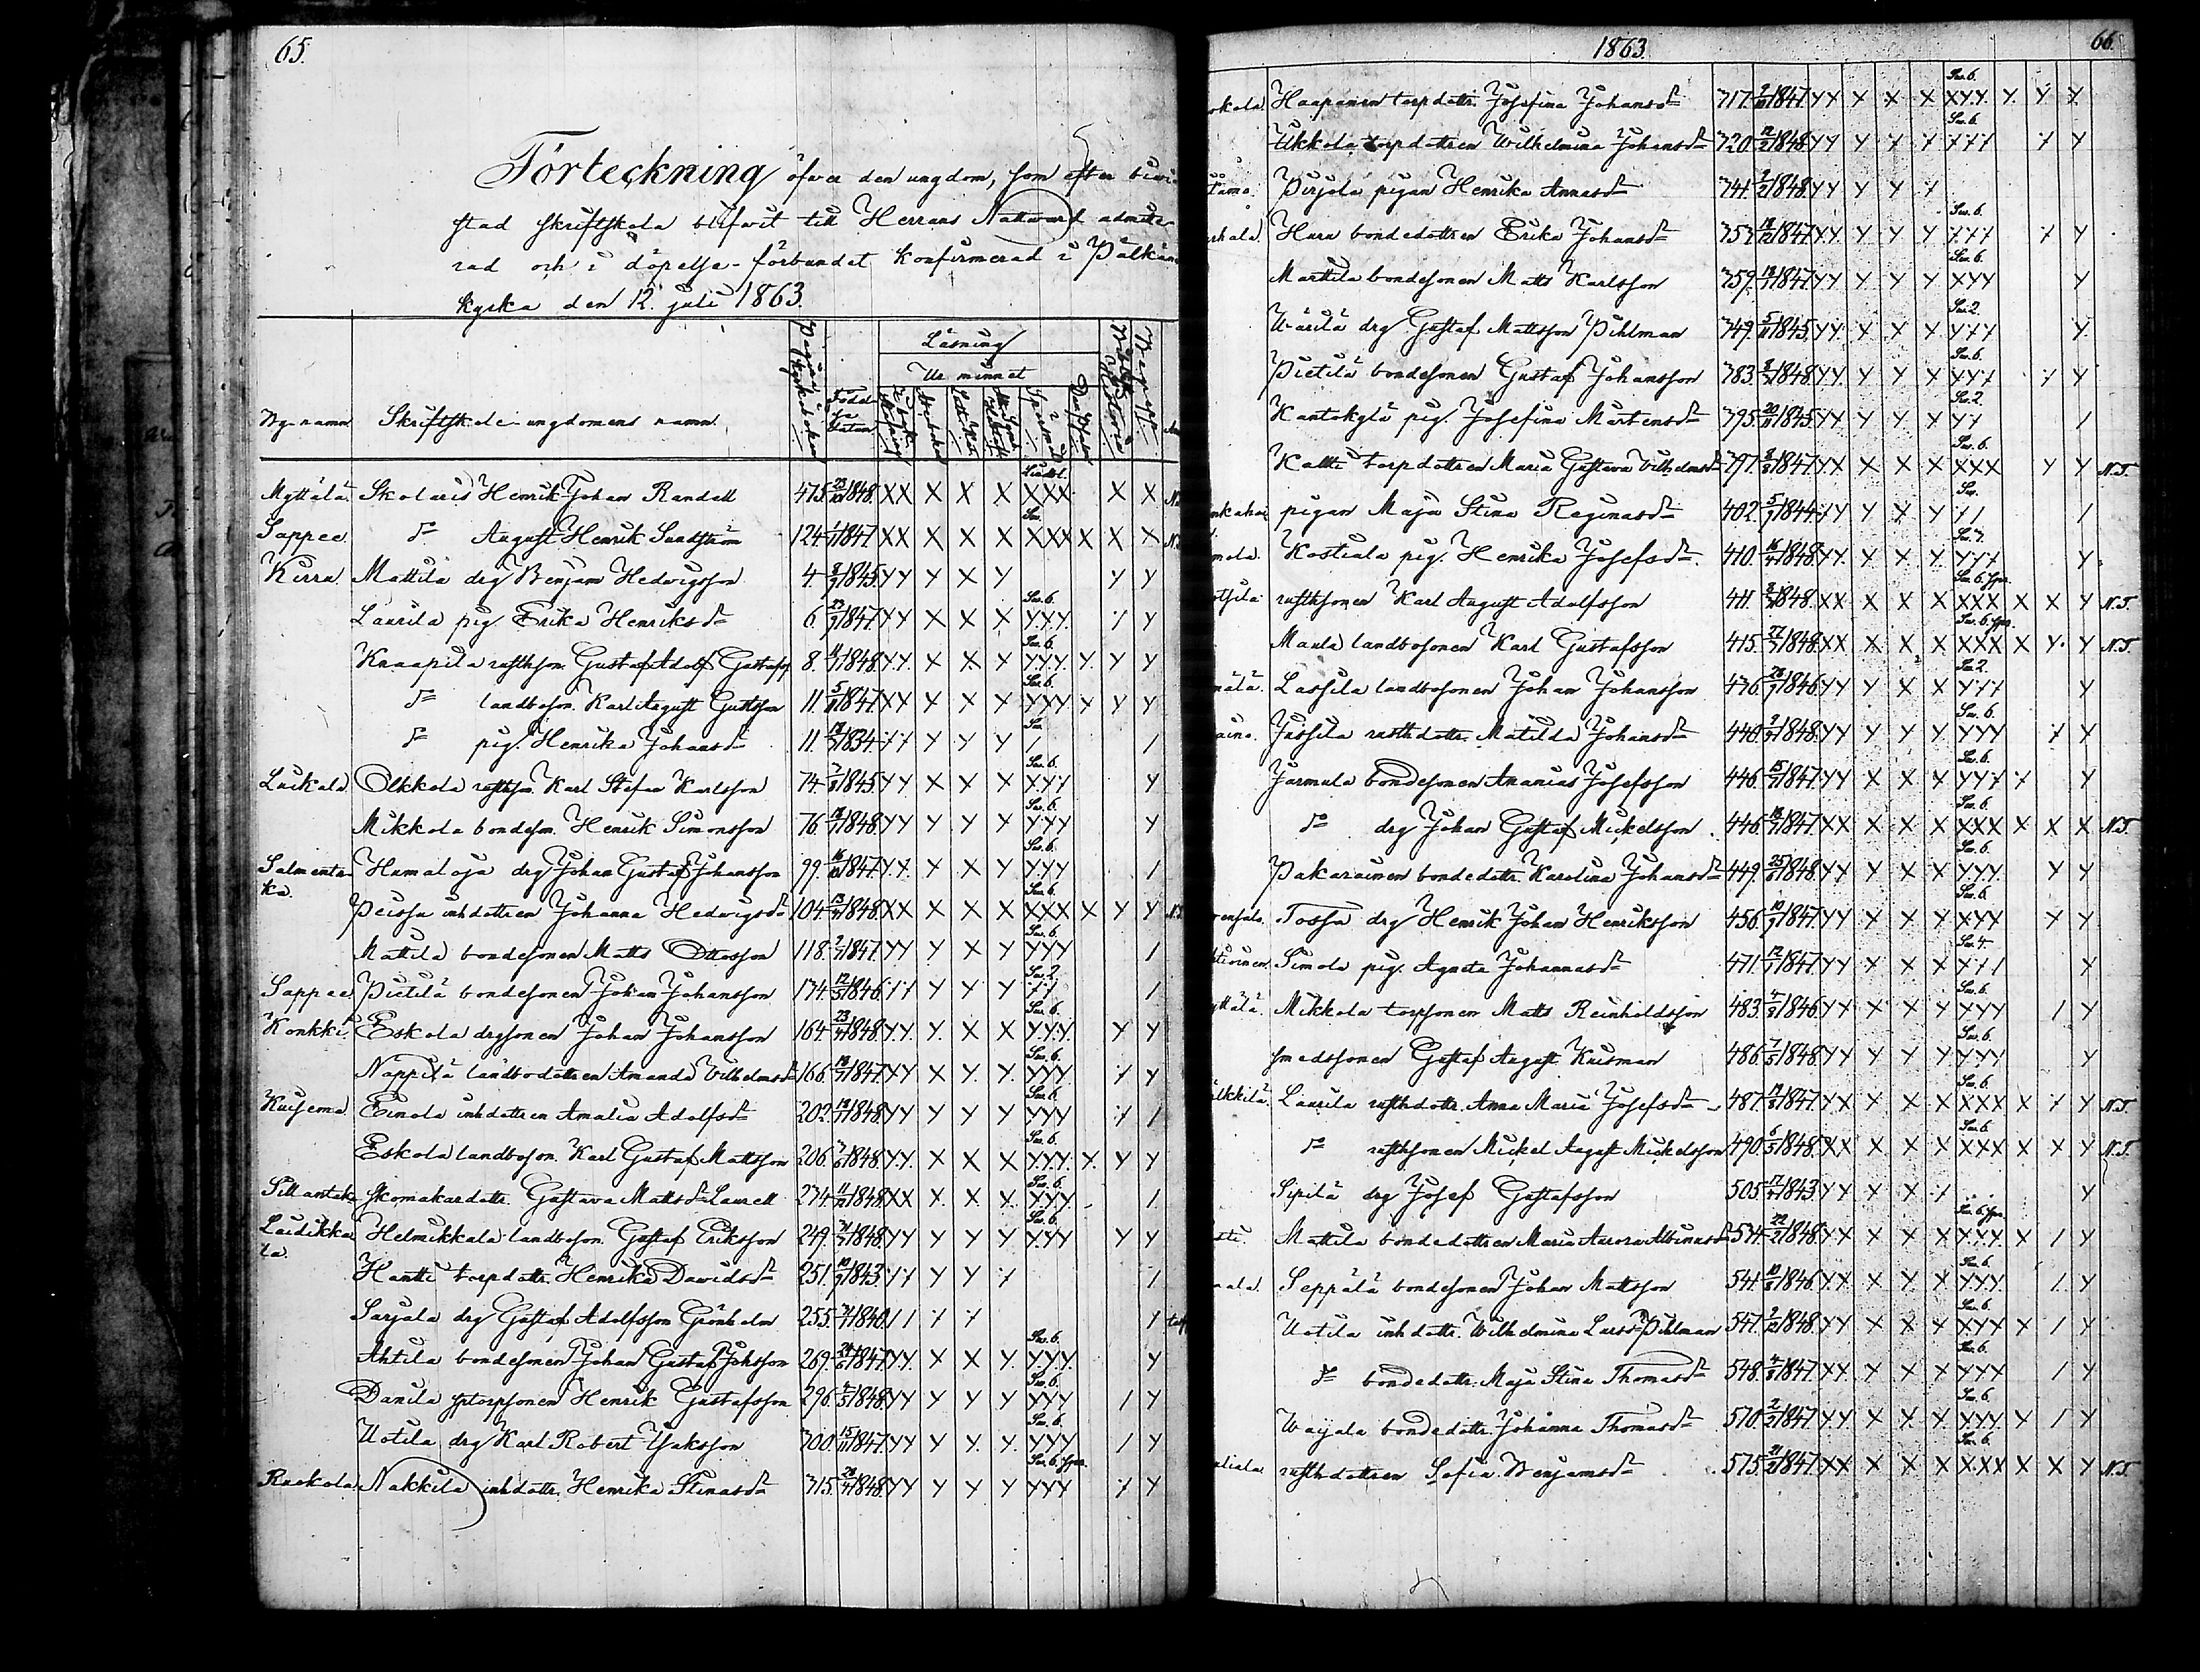 65.
Förteckning öfver den ungdom, som efter bevi-
stad skriftskola blifvit till Herrans Nattvard admitte-
rad och i döpelse-förbundet konfirmerad i Pälkäne
kyrka den 12. juli 1863.
Läsning
Ur minnet
By namn Skriftskole-ungdomens namn
Lindbl.
Myttälä. Skolaris Henrik Johan Randell 473. 1848. XX X X X XXX X X
Sv.
Sappee. do August Henrik Sundström 124. 1847 XX X X X XXX X X X
Kirra. Mattila drg Benjam Hedvigsson 4. 1845. YY Y X Y Y Y
Sv. 6.
Laurila pig. Erika Henriksdr 6. 1847. YY X X X Y.Y.Y. Y Y
Sv. 6.
Knaapila rusthson. Gustaf Adolf Gustafss 8. 1848. Y.Y. X X Y Y.Y.Y. Y. Y Y
Sv. 6.
do landboson. Karl August Gustfson 11. 1847. XX Y X X YYY Y Y Y
Sv.
do pig. Henrika Johansdr 11. 1834. Y Y Y / /
Sv. 6.
Luikala. Olkkola rusthson. Karl Stefan Karlsson 74. 1845. YY X X X YYY Y
Sv. 6.
Mikkola bondeson. Henrik Simonsson 76. 1848. YY Y Y X YYY Y
Sv. 6.
Salmenta- Hamaloja drg Johan Gustaf Johansson 99. 1847. Y.Y. X X Y YYY /
ka.
Sv. 6.
Peissa inhdottren Johanna Hedvigsdr 104. 1848. XX X X X XXX X Y Y N.T.
Sv. 6.
Mattila bondesonen Matts Ottosson 118. 1847. YY Y X Y YYY /
Sv. 2.
Sappee. Pietilä bondesonen Johan Johansson 174. 1846. Y Y Y /
Sv. 6.
Konkki. Eskola drgsonen Johan Johansson 164. 1848. Y.Y. Y. X X Y.Y.Y. Y Y
Sv. 6.
Näppilä landbodottren Amanda Vilhelmsdr 166. 1847. YY X Y. Y. YYY. Y Y
Sv. 6.
Kuisema. Einola inhdottren Amalia Adolfsdr 202. 1848. YY Y Y Y YYY Y /
Sv. 6.
Eskola landboson. Karl Gustaf Mattsson 206. 1848. Y.Y. X X X Y.Y.Y. Y. Y Y
Sv. 6.
skomakardottr. Gustava Mattsdr Laurell 274. 1848. XX X. X. X YYY. /
Sv. 6.
Laidikka- Helmikkala landboson. Gustaf Eriksson 249. 1848. YY Y Y Y YYY Y Y
la.
Hantti torpdottr. Henrika Davidsdr 251. 1843. Y Y Y /
Sarjala drg Gustaf Adolfsson Grönholm 255. 1840. / / Y Y /
Sv. 6.
Ahtila bondesonen Johan Gustaf Johsson 269. 1847. Y.Y. X X Y. Y.Y.Y. Y
Sv. 6.
Danila Henrik Gustafsson 296. 1848. YY Y Y Y YYY / Y
Sv. 6.
Uotila drg Karl Robert Isaksson 300. 1847. YY Y Y. Y. YYY / Y
Sv. 6.
Raakola. Nakkila inhdottr. Henrika Stinasdr 315. 1848. YY Y Y Y YYY Y Y
1863.
66.
Sv. 6.
Haapanen torpdottr. Josefina Johansdr 317. 1847. YY X X X XYY. Y. Y Y
Sv. 6.
Ukkola torpdottren Wilhelmina Johansdr 320. 1848. YY Y Y Y YYY Y Y
Pirjola pigan Henrika Annasdr 341. 1848. YY Y Y Y
Sv. 6.
Haru bondedottren Erika Johansdr 353. 1847. YY. Y Y Y YYY Y Y
Sv. 6.
Marttila bondesonen Matts Karlsson 359. 1847. YY Y Y Y XYY Y
Sv. 2.
Wärilä drg Gustaf Mattsson Pihlman 349. 1845. YY. X X X YYY Y.
Sv. 6.
Pietilä bondesonen Gustaf Johansson 383. 1848. YY. Y Y X YYY Y Y
Sv. 2.
Kantokylä pig. Josefina Mårtensdr 395. 1845. YY. Y Y X YY /
Sv. 6.
Kallti torpdottren Maria Gustava Vilhelmsdr 397. 1847. YX X X X XXX Y Y N.T.
Sv.
pigan Maja Stina Reginasdr 402. 1844. YY Y X Y // /
Kostiala pig. Henrika Josefsdr 410. 1848. YY. Y X Y YYY Y.
Sv. 6.
rusthsonen Karl August Adolfsson 411. 1848. XX X X X XXX X X Y N.T.
Sv. 6.
Maula landbosonen Karl Gustafsson 415. 1848. XX X X X XXX X Y. Y N.T.
Sv. 2.
Lassila landbosonen Johan Johansson 436. 1846. YY Y X X YYY Y
Sv. 6.
Jussila rusthdottr. Matilda Johansdr 440. 1848. YY Y Y Y YYY Y Y
Sv. 6.
Jarmula bondesonen Ananias Josefsson 446. 1847. YY X X X YYY Y Y
Sv. 6.
do drg Johan Gustaf Mickelsson 446. 1847. XX X X X XXX X X X N.T.
Sv. 6.
Pakarainen bondedottr. Karolina Johansdr 449. 1848. YY Y X X YYY. Y Y
Sv. 6.
Tossa drg Henrik Johan Henriksson 456. 1847. YY Y X Y XYY X Y
Sv. 4.
Simola pig. Agneta Johannasdr 471. 1847. YY X X X XY/ Y
Sv. 6.
Mikkola torpsonen Matts Reinholdsson 483. 1846. YX X X Y YYY / Y
Sv. 6.
smedssonen Gustaf August Kuisman 486. 1848. YY Y Y Y YYY Y
Sv. 6.
Laurila rusthdottr. Anna Maria Josefsdr 487. 1847. YX X X X XXX X Y Y N.T.
Sv. 6.
do rusthsonen Mickel August Mickelsson 490. 1848. XX X X X XXX X X Y N.T.
Sipilä drg Josef Gustafsson 505. 1843. YY X X Y Y
Sv. 6.
Mattila bondedottren Maria Aurora Albinasdr 534. 1848. YX X X X XXX X / Y
Sv. 6.
Seppälä bondesonen Johan Mattsson 541. 1846. Y.X. X X X YYY. / Y
Sv. 6.
Uotila inhdottr. Wilhelmina Larsdr Pihlman 547. 1848. YY X X X XYX X / Y
Sv. 6.
do bondedottr. Maja Stina Thomasdr 548. 1847. XX X X X YYY / Y
Sv. 6.
Wayala bondedottr. Johanna Thomasdr 570. 1847. YY X X X YYY X / Y
Sv. 6.
rusthdottren Sofia Benjamsdr 575. 1847. XX X X X XXX X X Y N.T.